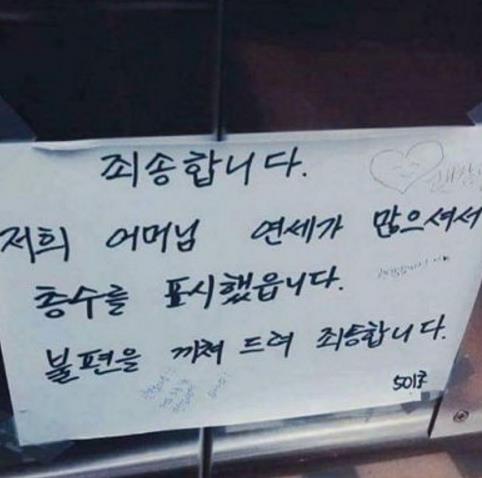 죄송합니다.
저희 어머님 연세가 많으셔서
층수를 표시했읍니다.
불편을 끼쳐 드려 죄송합니다.
501호